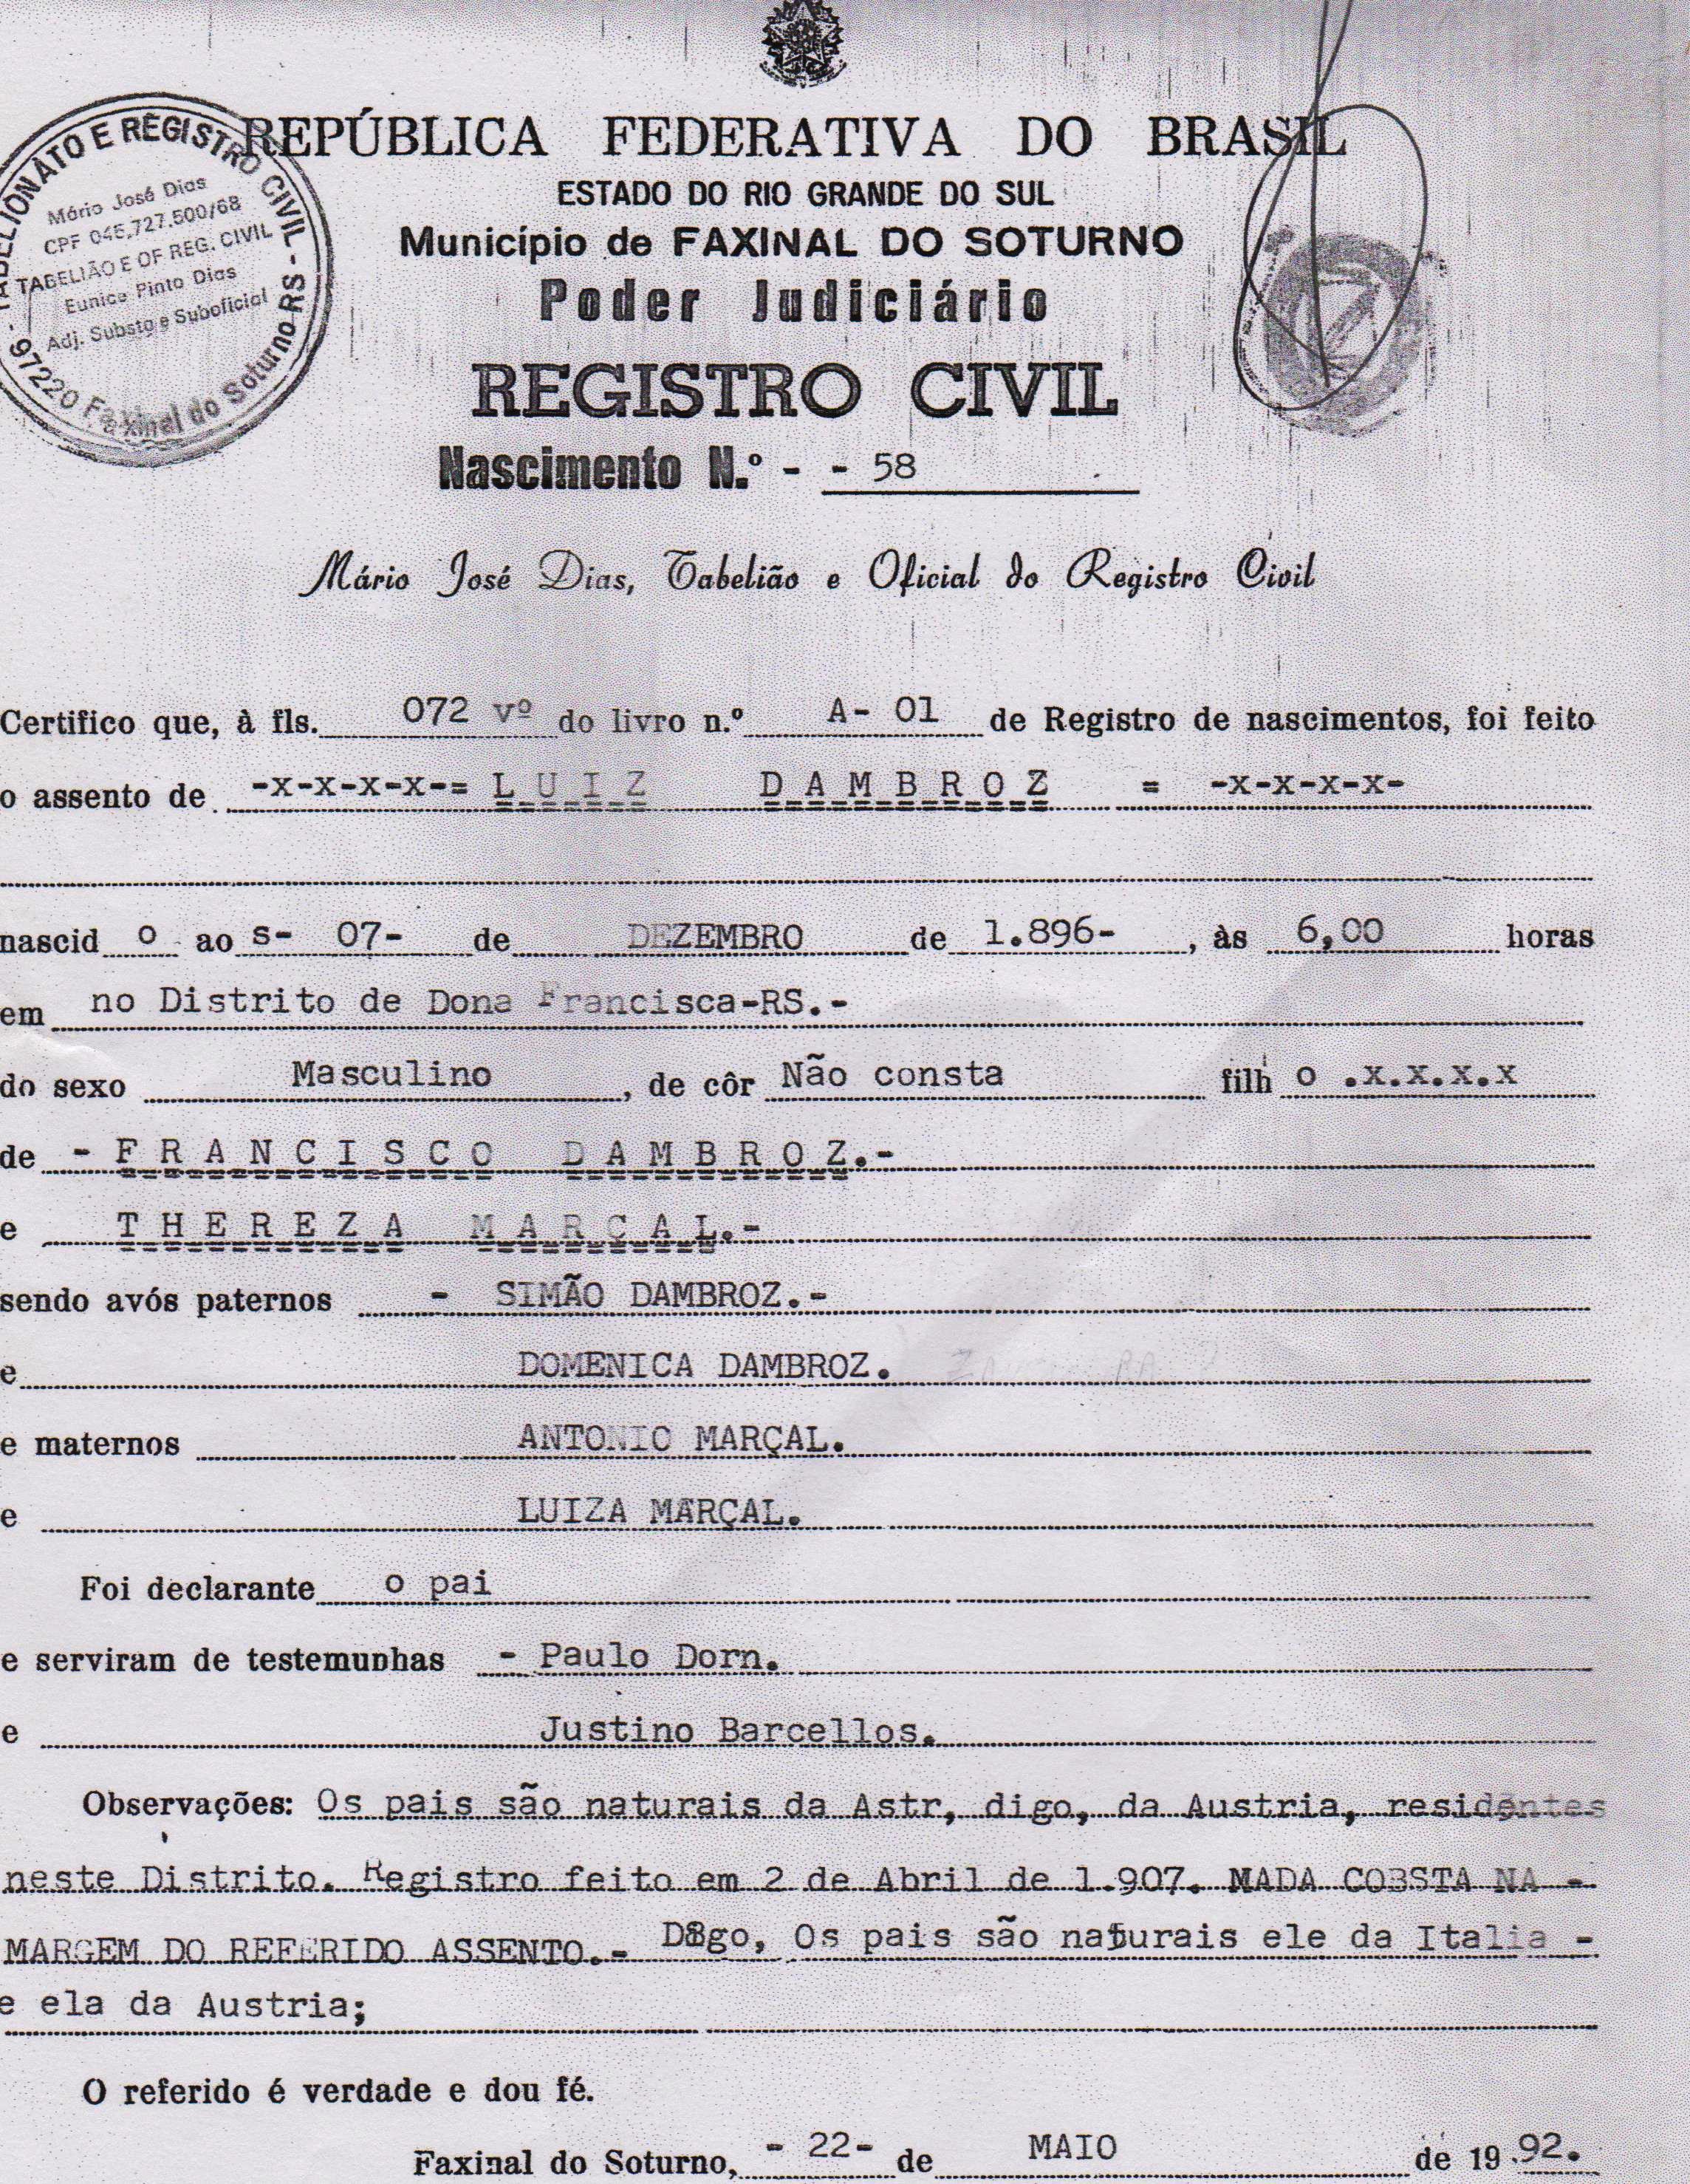 REPÚBLICA FEDERATIVA DO BRASIL
ESTADO DO RIO GRANDE DO SUL
Município de FAXINAL DO SOTURNO
Poder Judiciário
REGISTRO CIVIL
Nascimento N.º - - 58
TABELIONATO E REGISTRO CIVIL - RS
Mário José Dias
CPF 045.727.500/68
TABELIÃO E OF REG. CIVIL
Eunice Pinto Dias
Adj. Substa e Suboficial
97220 Faxinal do Soturno
Mário José Dias, Tabelião e Oficial do Registro Civil
Certifico que, à fls. 072 vº do livro n.º A- 01 de Registro de nascimentos, foi feito
o assento de -x-x-x-x-= LUIZ DAMBROZ = -x-x-x-x-
nascid o ao s- 07- de DEZEMBRO de 1.896- , às 6,00 horas
em no Distrito de Dona Francisca-RS.-
do sexo Masculino , de côr Não consta filh o .x.x.x.x
de - FRANCISCO DAMBROZ.-
e THEREZA MARCAL.-
sendo avós paternos - SIMÃO DAMBROZ.-
e DOMENICA DAMBROZ.
e maternos ANTONIO MARÇAL.
e LUIZA MARÇAL.
Foi declarante o pai
e serviram de testemunhas - Paulo Dorn.
e Justino Barcellos.
Observações: Os pais são naturais da Astr, digo, da Austria, residentes
neste Distrito. Registro feito em 2 de Abril de 1.907. MADA COBSTA NA -
MARGEM DO REFERIDO ASSENTO.- Digo, Os pais são naturais ele da Italia -
e ela da Austria;
O referido é verdade e dou fé.
Faxinal do Soturno, - 22- de MAIO de 19 92.